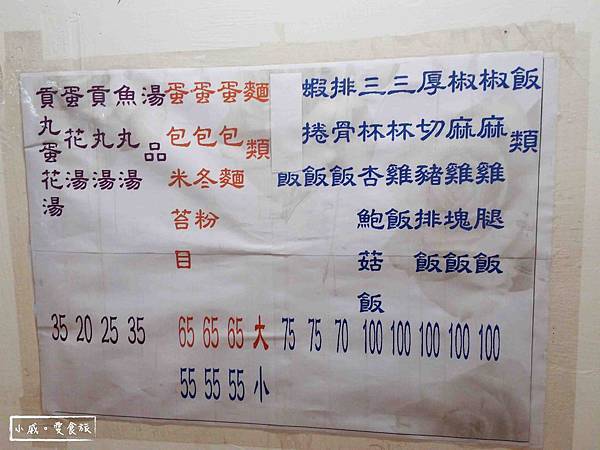 飯類
椒麻雞腿飯 100
椒麻雞塊飯 100
厚切豬排飯 100
三杯雞飯 100
三杯杏鮑菇飯 100
排骨飯 70
蝦捲飯 75
飯 75
麵類 大 小
蛋包麵 65 55
蛋包冬粉 65 55
蛋包米苔目 65 55
湯品
魚丸湯 35
貢丸湯 25
蛋花湯 20
貢丸蛋花湯 35
小戚。愛食旅